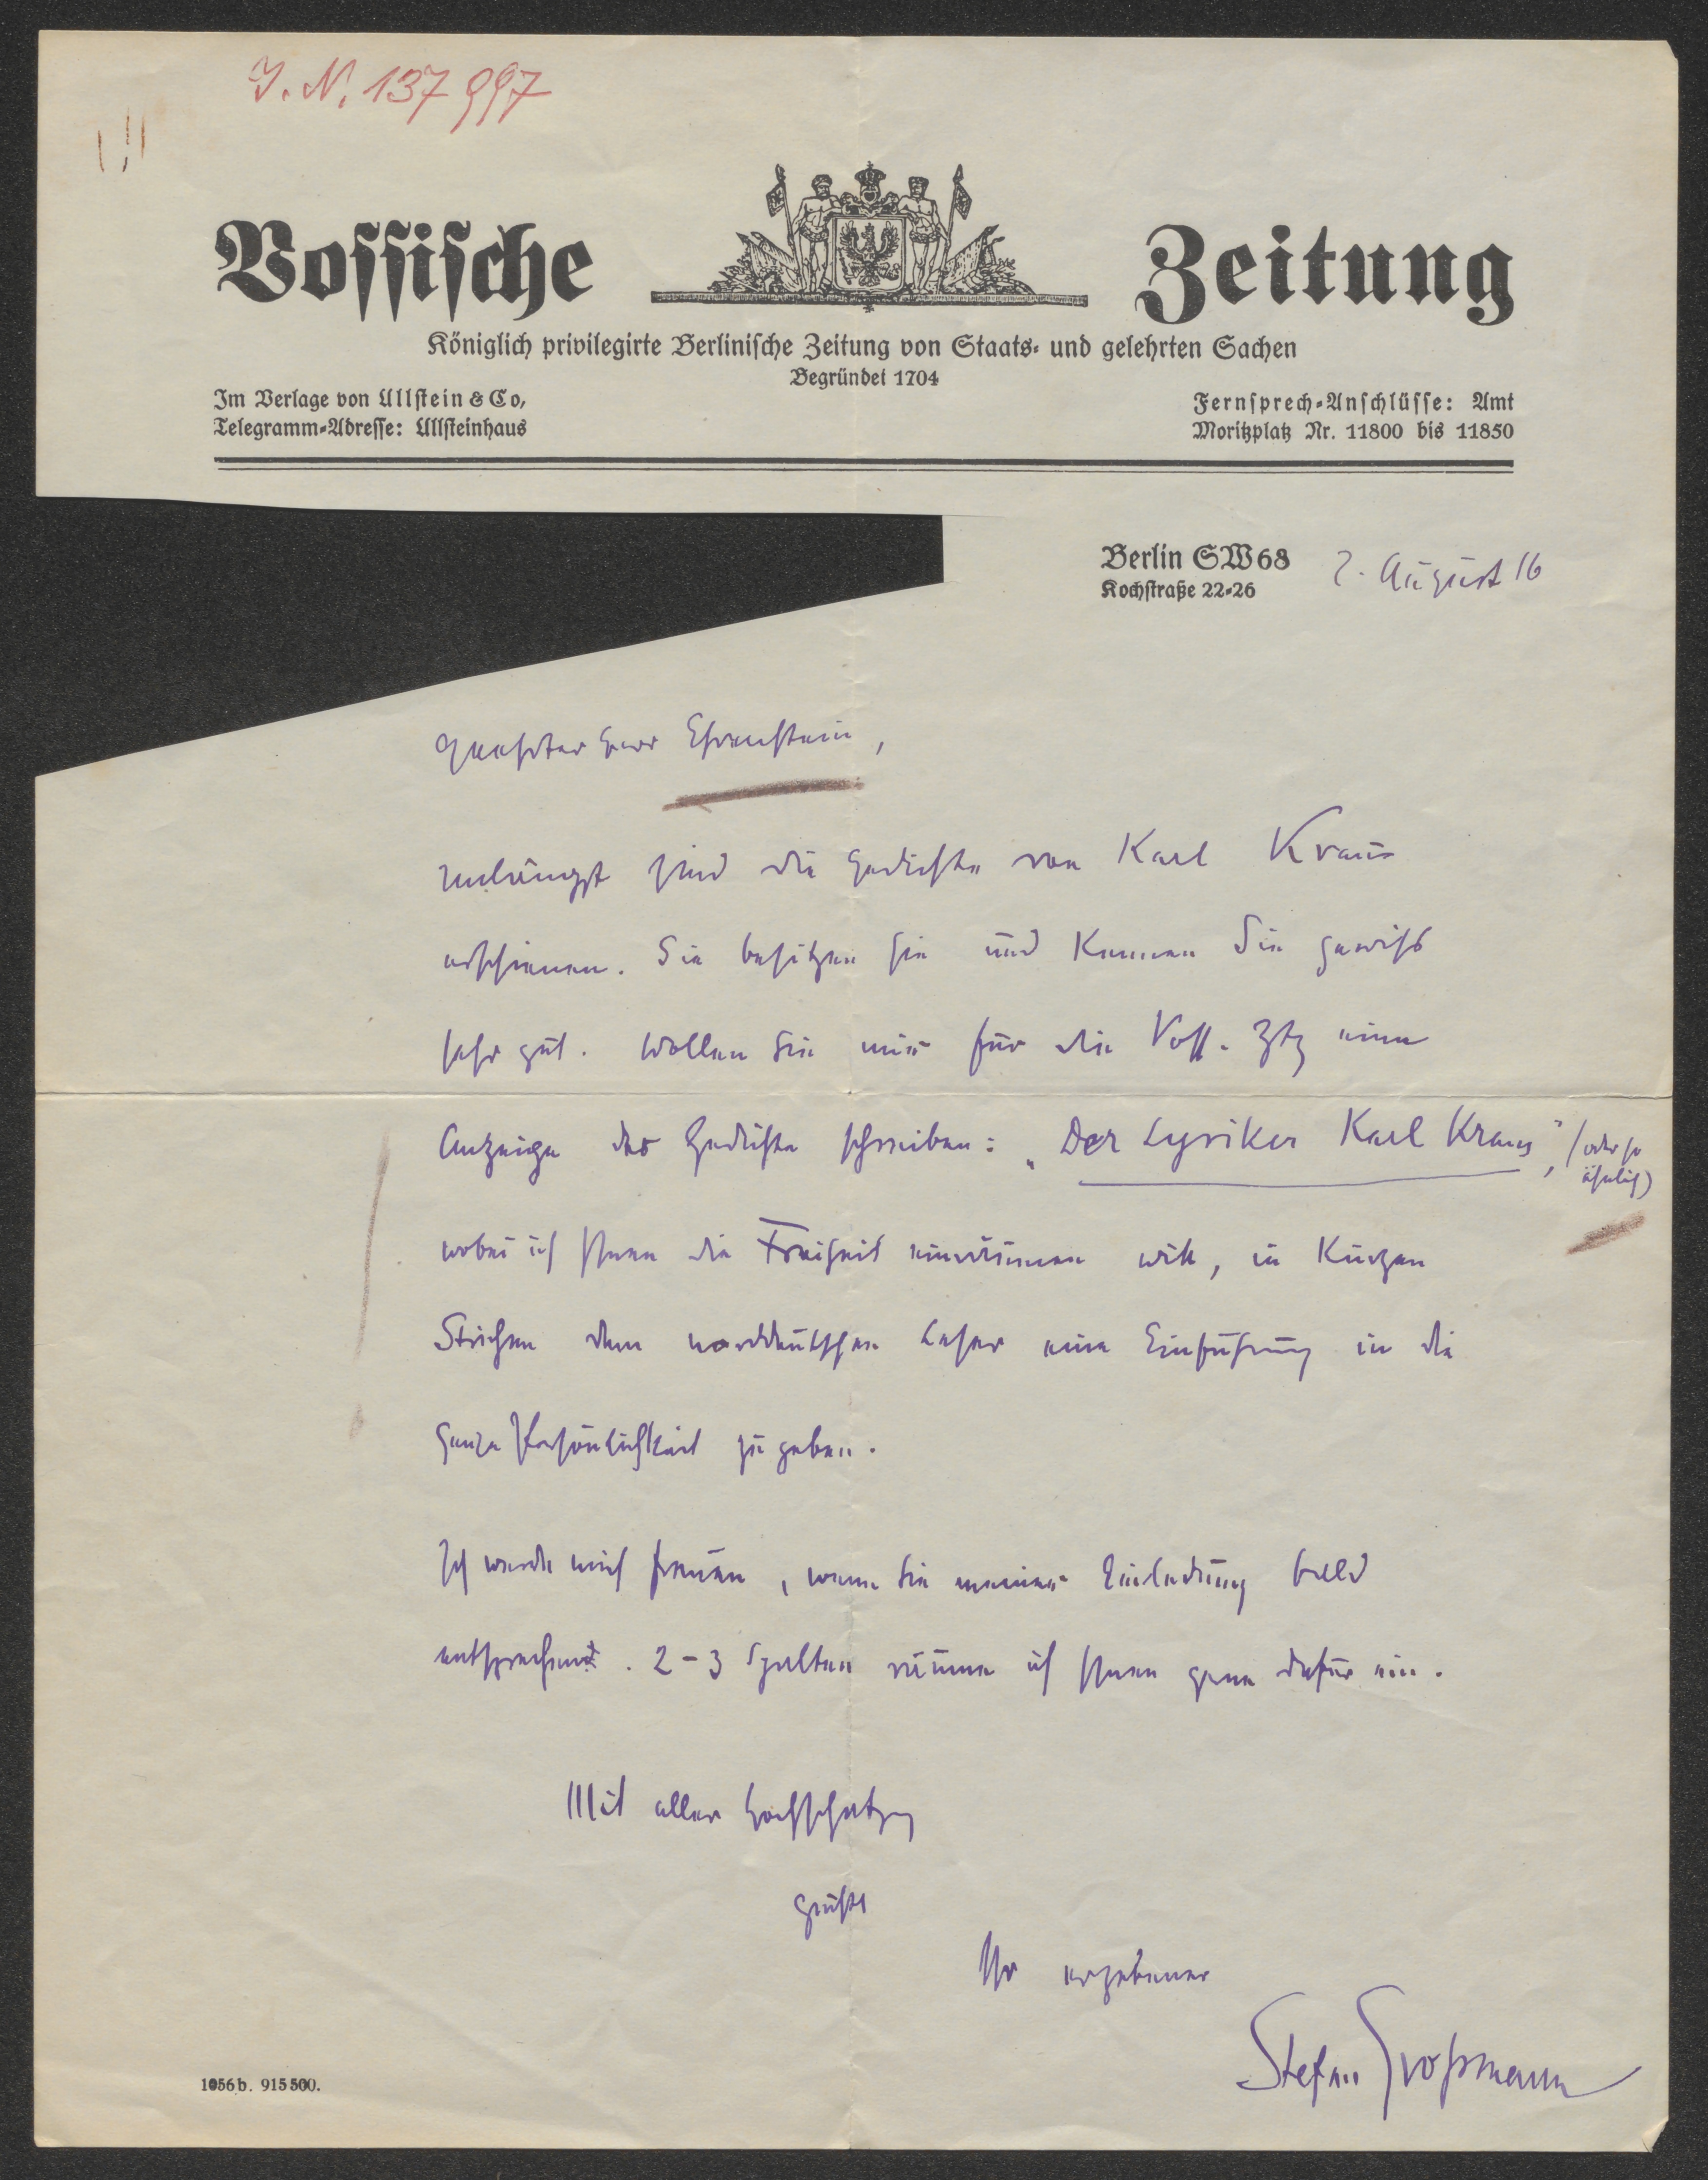 J. N. 137 997
Vossische Zeitung
Königlich privilegirte Berlinische Zeitung von Staats- und gelehrten Sachen
Begründet 1704
Im Verlage von Ullstein & Co,
Telegramm-Adresse: Ullsteinhaus
Fernsprech-Anschlüsse: Amt
Moritzplatz Nr. 11800 bis 11850
Berlin SW68 2. August 16
Kochstraße 22-26
geehrter Herr Ehrenstein,
unlängst sind die Gedichte von Karl Kraus
erschienen. Sie besitzen sie und kennen sie gewiss
sehr gut. Wollen Sie mir für die Voss. Ztg eine
Anzeige der Gedichte schreiben: „Der Lyriker Karl Kraus", (oder so
ähnlich)
wobei ich Ihnen die Freiheit einräumen will, in kurzen
Strichen dem norddeutschen Leser eine Einführung in die
ganze Persönlichkeit zu geben.
Ich werde mich freuen, wenn Sie meiner Einladung bald
entsprechen. 2-3 Spalten räume ich Ihnen gern dafür ein.
Mit aller Hochschätzg
grüßt
Ihr ergebener
Stefan Großmann
1056b. 915500.